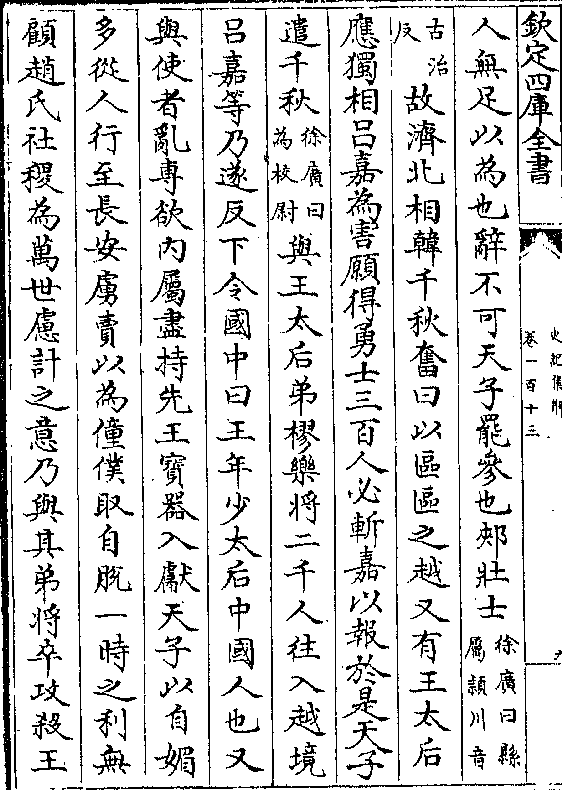 欽定四庫全書
史記集解
卷一百十三
人無足以為也辭不可天子罷參也郟壯士徐廣曰縣屬潁川音
古洽反故濟北相韓千秋奮曰以區區之越又有王太后
應獨相呂嘉為害願得勇士三百人必斬嘉以報於是天子
遣千秋徐廣曰為校尉與王太后弟樛樂將二千人往入越境
呂嘉等乃遂反下令國中曰王年少太后中國人也又
與使者亂專欲內屬盡持先王寶器入獻天子以自媚
多從人行至長安虜賣以為僮僕取自脫一時之利無
顧趙氏社稷為萬世慮計之意乃與其弟將卒攻殺王